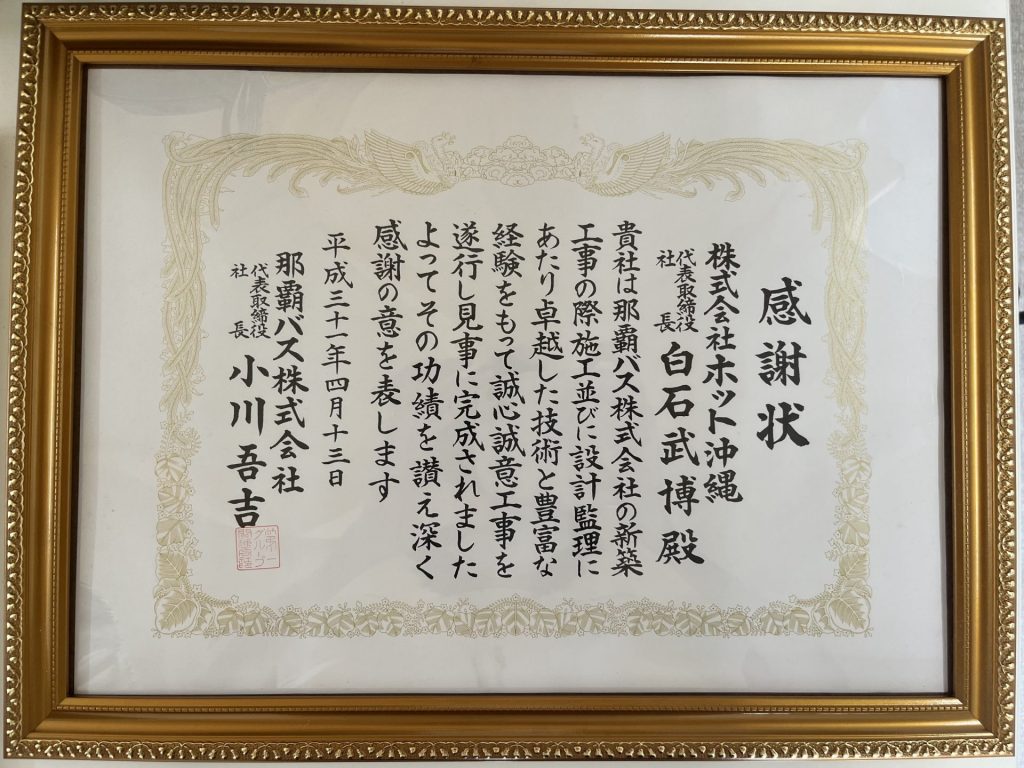 感謝状
株式会社ホット沖縄
代表取締役
社長
白石武博殿
貴社は那覇バス株式会社の新築
工事の際施工並びに設計監理に
あたり卓越した技術と豊富な
経験をもって誠心誠意工事を
遂行し見事に完成されました
よってその功績を讃え深く
感謝の意を表します
平成三十一年四月十三日
那覇バス株式会社
代表取締役
社長
小川吾吉
第一
グループ